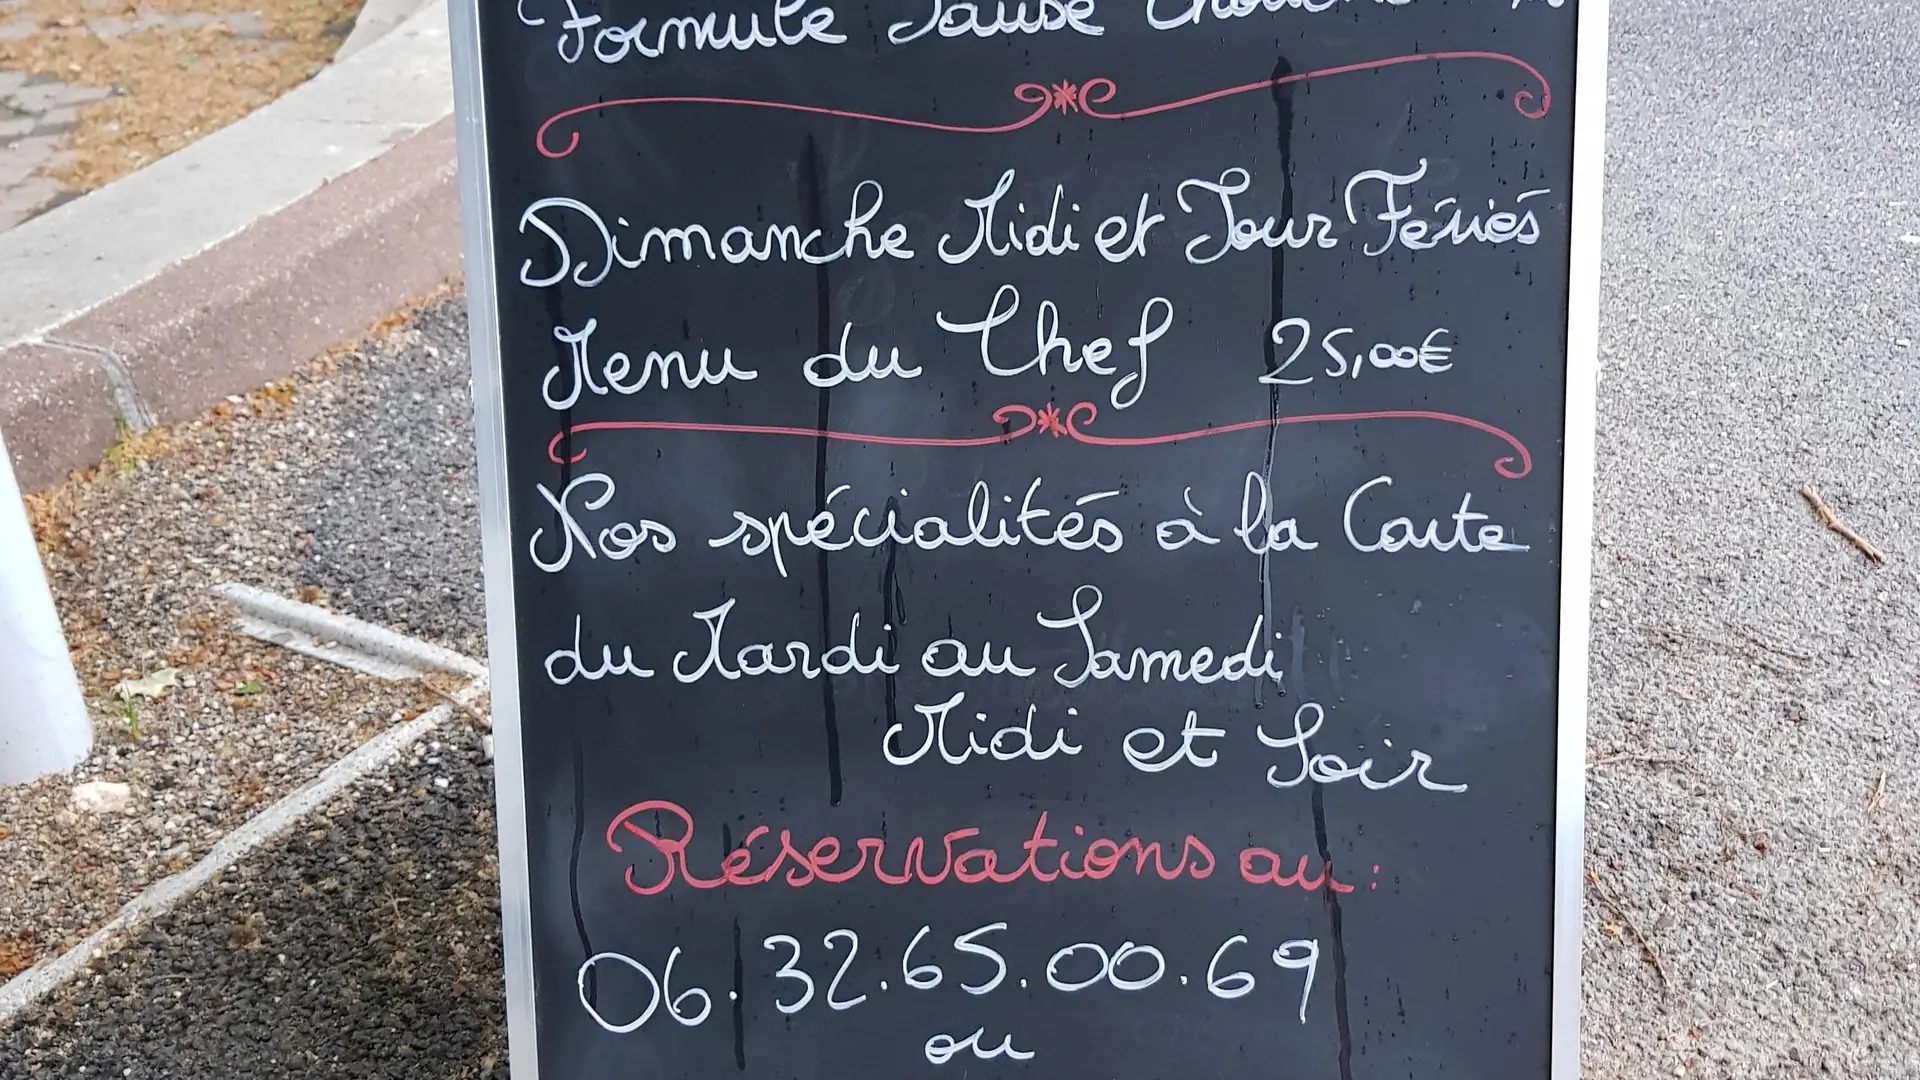 Formule Pause
Dimanche Midi et Jour Fériés
Menu du Chef 25,00€
Nos spécialités à la Carte
du Mardi au Samedi
Midi et Soir
Réservations au :
06.32.65.00.69
ou